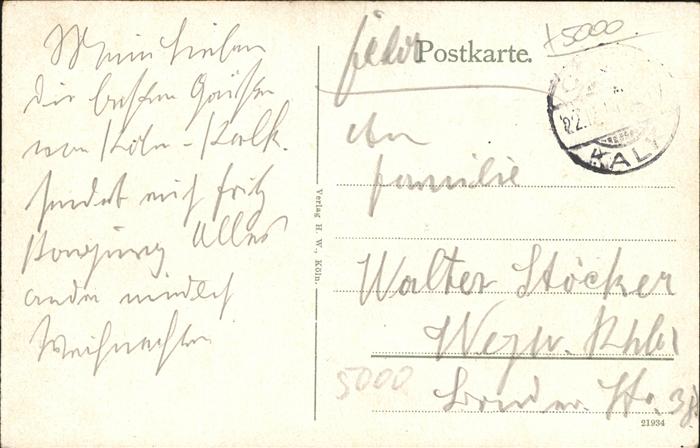 Mein Lieben
die besten Grüße
von Köln-Kalk.
sendet euch Fritz
Alles
ander mündlich
Weihnachten
Feld Postkarte.
+5000
KALK
An
Familie
Walter Stöcker
5000
Verlag H. W., Köln.
21934